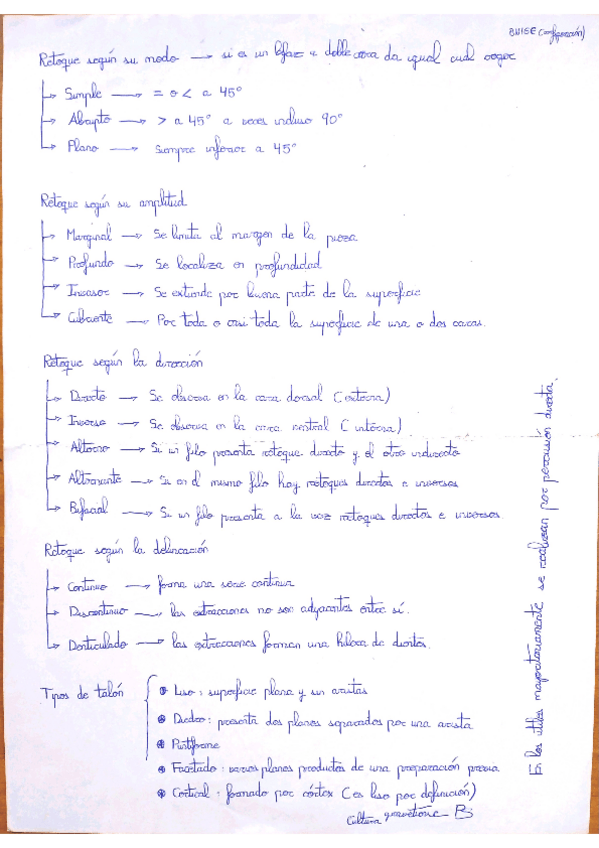 BUISE (configuración)
Retoque según su modo → si es un bifaz o doble cara da igual cual coger
Simple → = o < a 45°
Abrupto → > a 45° a veces incluso 90°
Plano → siempre inferior a 45°
Retoque según su amplitud
Marginal → Se limita al margen de la pieza
Profundo → Se localiza en profundidad
Invasor → Se extiende por buena parte de la superficie
Cubriente → Por toda o casi toda la superficie de una o dos caras.
Retoque según la dirección
Directo → Se observa en la cara dorsal (externa)
Inverso → Se observa en la cara ventral (interna)
Alterno → Si un filo presenta retoque directo y el otro indirecto
Alternante → Si en el mismo filo hay retoques directos e inversos
Bifacial → Si un filo presenta a la vez retoques directos e inversos
Retoque según la delineación
Continuo → forma una serie continua
Discontinuo → las extracciones no son adyacentes entre sí.
Denticulado → las extracciones forman una hilera de dientes.
Tipos de talón
Liso: superficie plana y sin aristas
Diedro: presenta dos planos separados por una arista
Puntiforme
Facetado: varios planos productos de una preparación previa
Cortical: formado por córtex (es liso por definición)
Cultura gravetiense
En los útiles mayoritariamente se realizan por percusión directa.